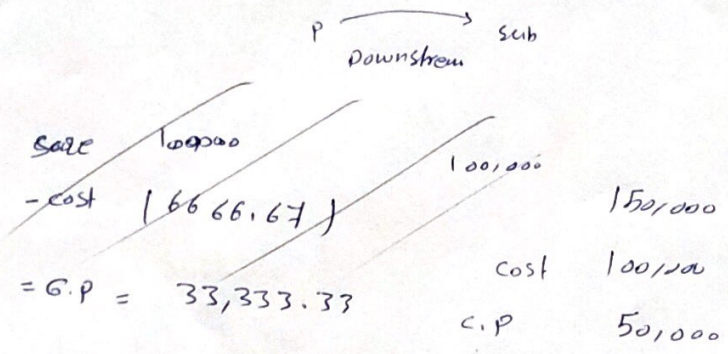 P → Sub
Downstrem
Sale 100000
100,000
- cost (6666.67)
150,000
cost 100,000
= G.P = 33,333.33
C.P 50,000